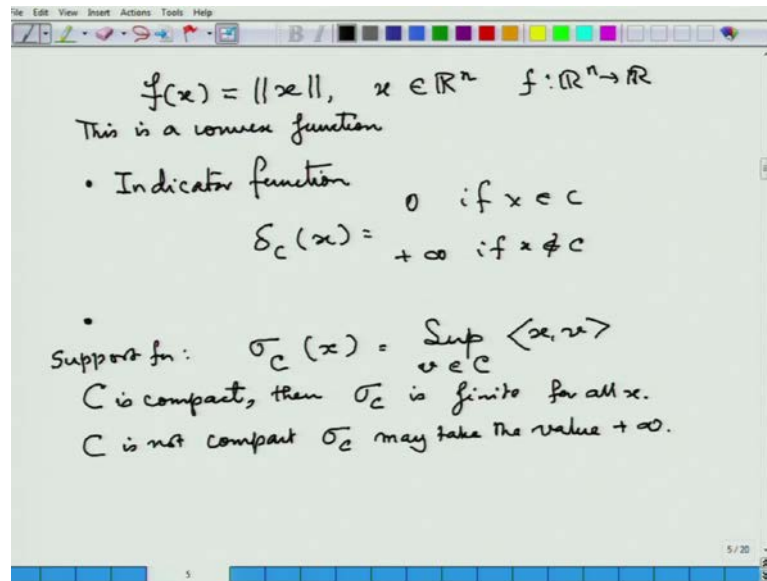 File Edit View Insert Actions Tools Help
f(x) = ||x||, x ∈ ℝⁿ f : ℝⁿ → ℝ
This is a convex function
• Indicator function
δ_C(x) = 0 if x ∈ C
+∞ if x ∉ C
•
Support fn: σ_C(x) = Sup ⟨x, v⟩
v ∈ C
C is compact, then σ_C is finite for all x.
C is not compact σ_C may take the value +∞.
5 / 20
5